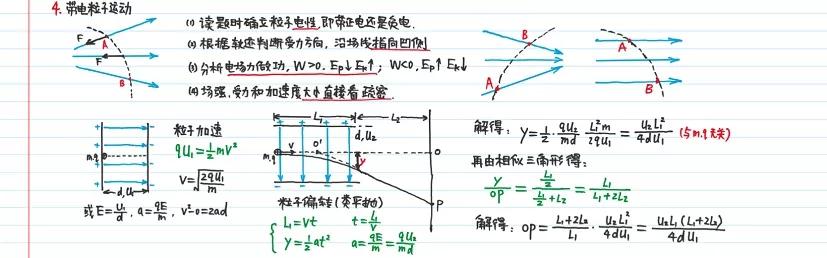 4. 带电粒子运动
(1) 读题时确立粒子电性,即带正电还是负电.
(2) 根据轨迹判断受力方向, 沿场线指向凹侧
(3) 分析电场力做功, W>0, Ep↓ Ek↑; W<0, Ep↑ Ek↓
(4) 场强,受力和加速度大小直接看疏密.
F A
F
B
B
A
A
B
+ -
m,q
d, U₁
粒子加速
qU₁=½mv²
v=√(2qU₁/m)
或E=U₁/d, a=qE/m, v²-0=2ad
L₁ L₂
d, U₂
m,q v O' y O
P
粒子偏转(类平抛)
L₁=vt t=L₁/v
y=½at² a=qE/m=qU₂/md
解得: y=½·qU₂/md·L₁²m/2qU₁=U₂L₁²/4dU₁ (与m,q无关)
再由相似三角形得:
y/OP=(L₁/2)/(L₁/2+L₂)=L₁/(L₁+2L₂)
解得: OP=(L₁+2L₂)/L₁·U₂L₁²/4dU₁=U₂L₁(L₁+2L₂)/4dU₁